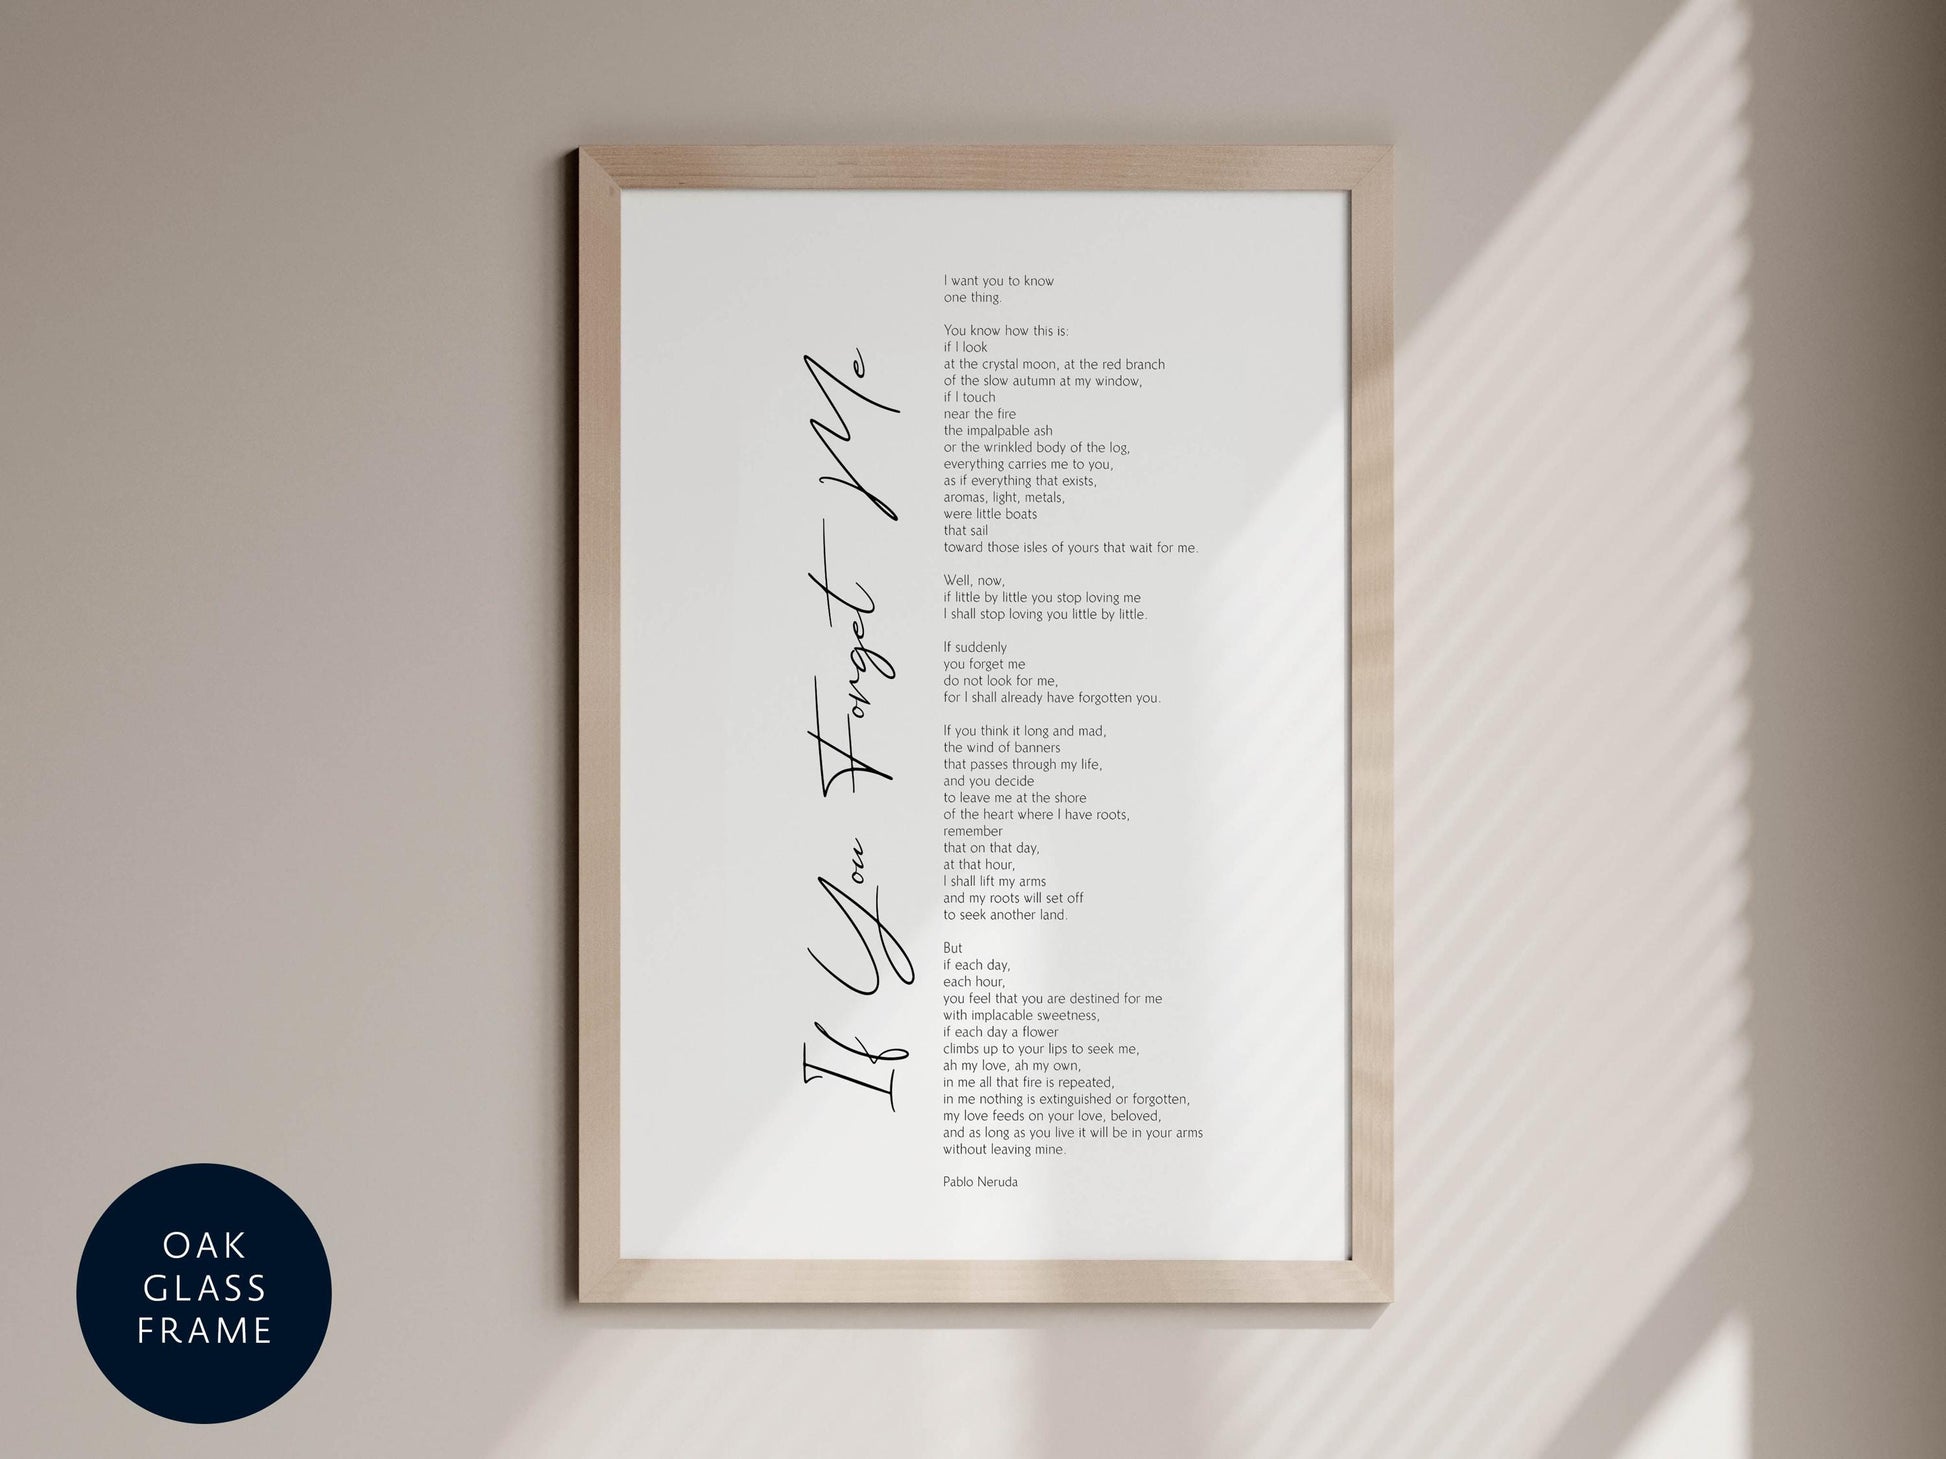 If You Forget Me
I want you to know
one thing.
You know how this is:
if I look
at the crystal moon, at the red branch
of the slow autumn at my window,
if I touch
near the fire
the impalpable ash
or the wrinkled body of the log,
everything carries me to you,
as if everything that exists,
aromas, light, metals,
were little boats
that sail
toward those isles of yours that wait for me.
Well, now,
if little by little you stop loving me
I shall stop loving you little by little.
If suddenly
you forget me
do not look for me,
for I shall already have forgotten you.
If you think it long and mad,
the wind of banners
that passes through my life,
and you decide
to leave me at the shore
of the heart where I have roots,
remember
that on that day,
at that hour,
I shall lift my arms
and my roots will set off
to seek another land.
But
if each day,
each hour,
you feel that you are destined for me
with implacable sweetness,
if each day a flower
climbs up to your lips to seek me,
ah my love, ah my own,
in me all that fire is repeated,
in me nothing is extinguished or forgotten,
my love feeds on your love, beloved,
and as long as you live it will be in your arms
without leaving mine.
Pablo Neruda
OAK
GLASS
FRAME